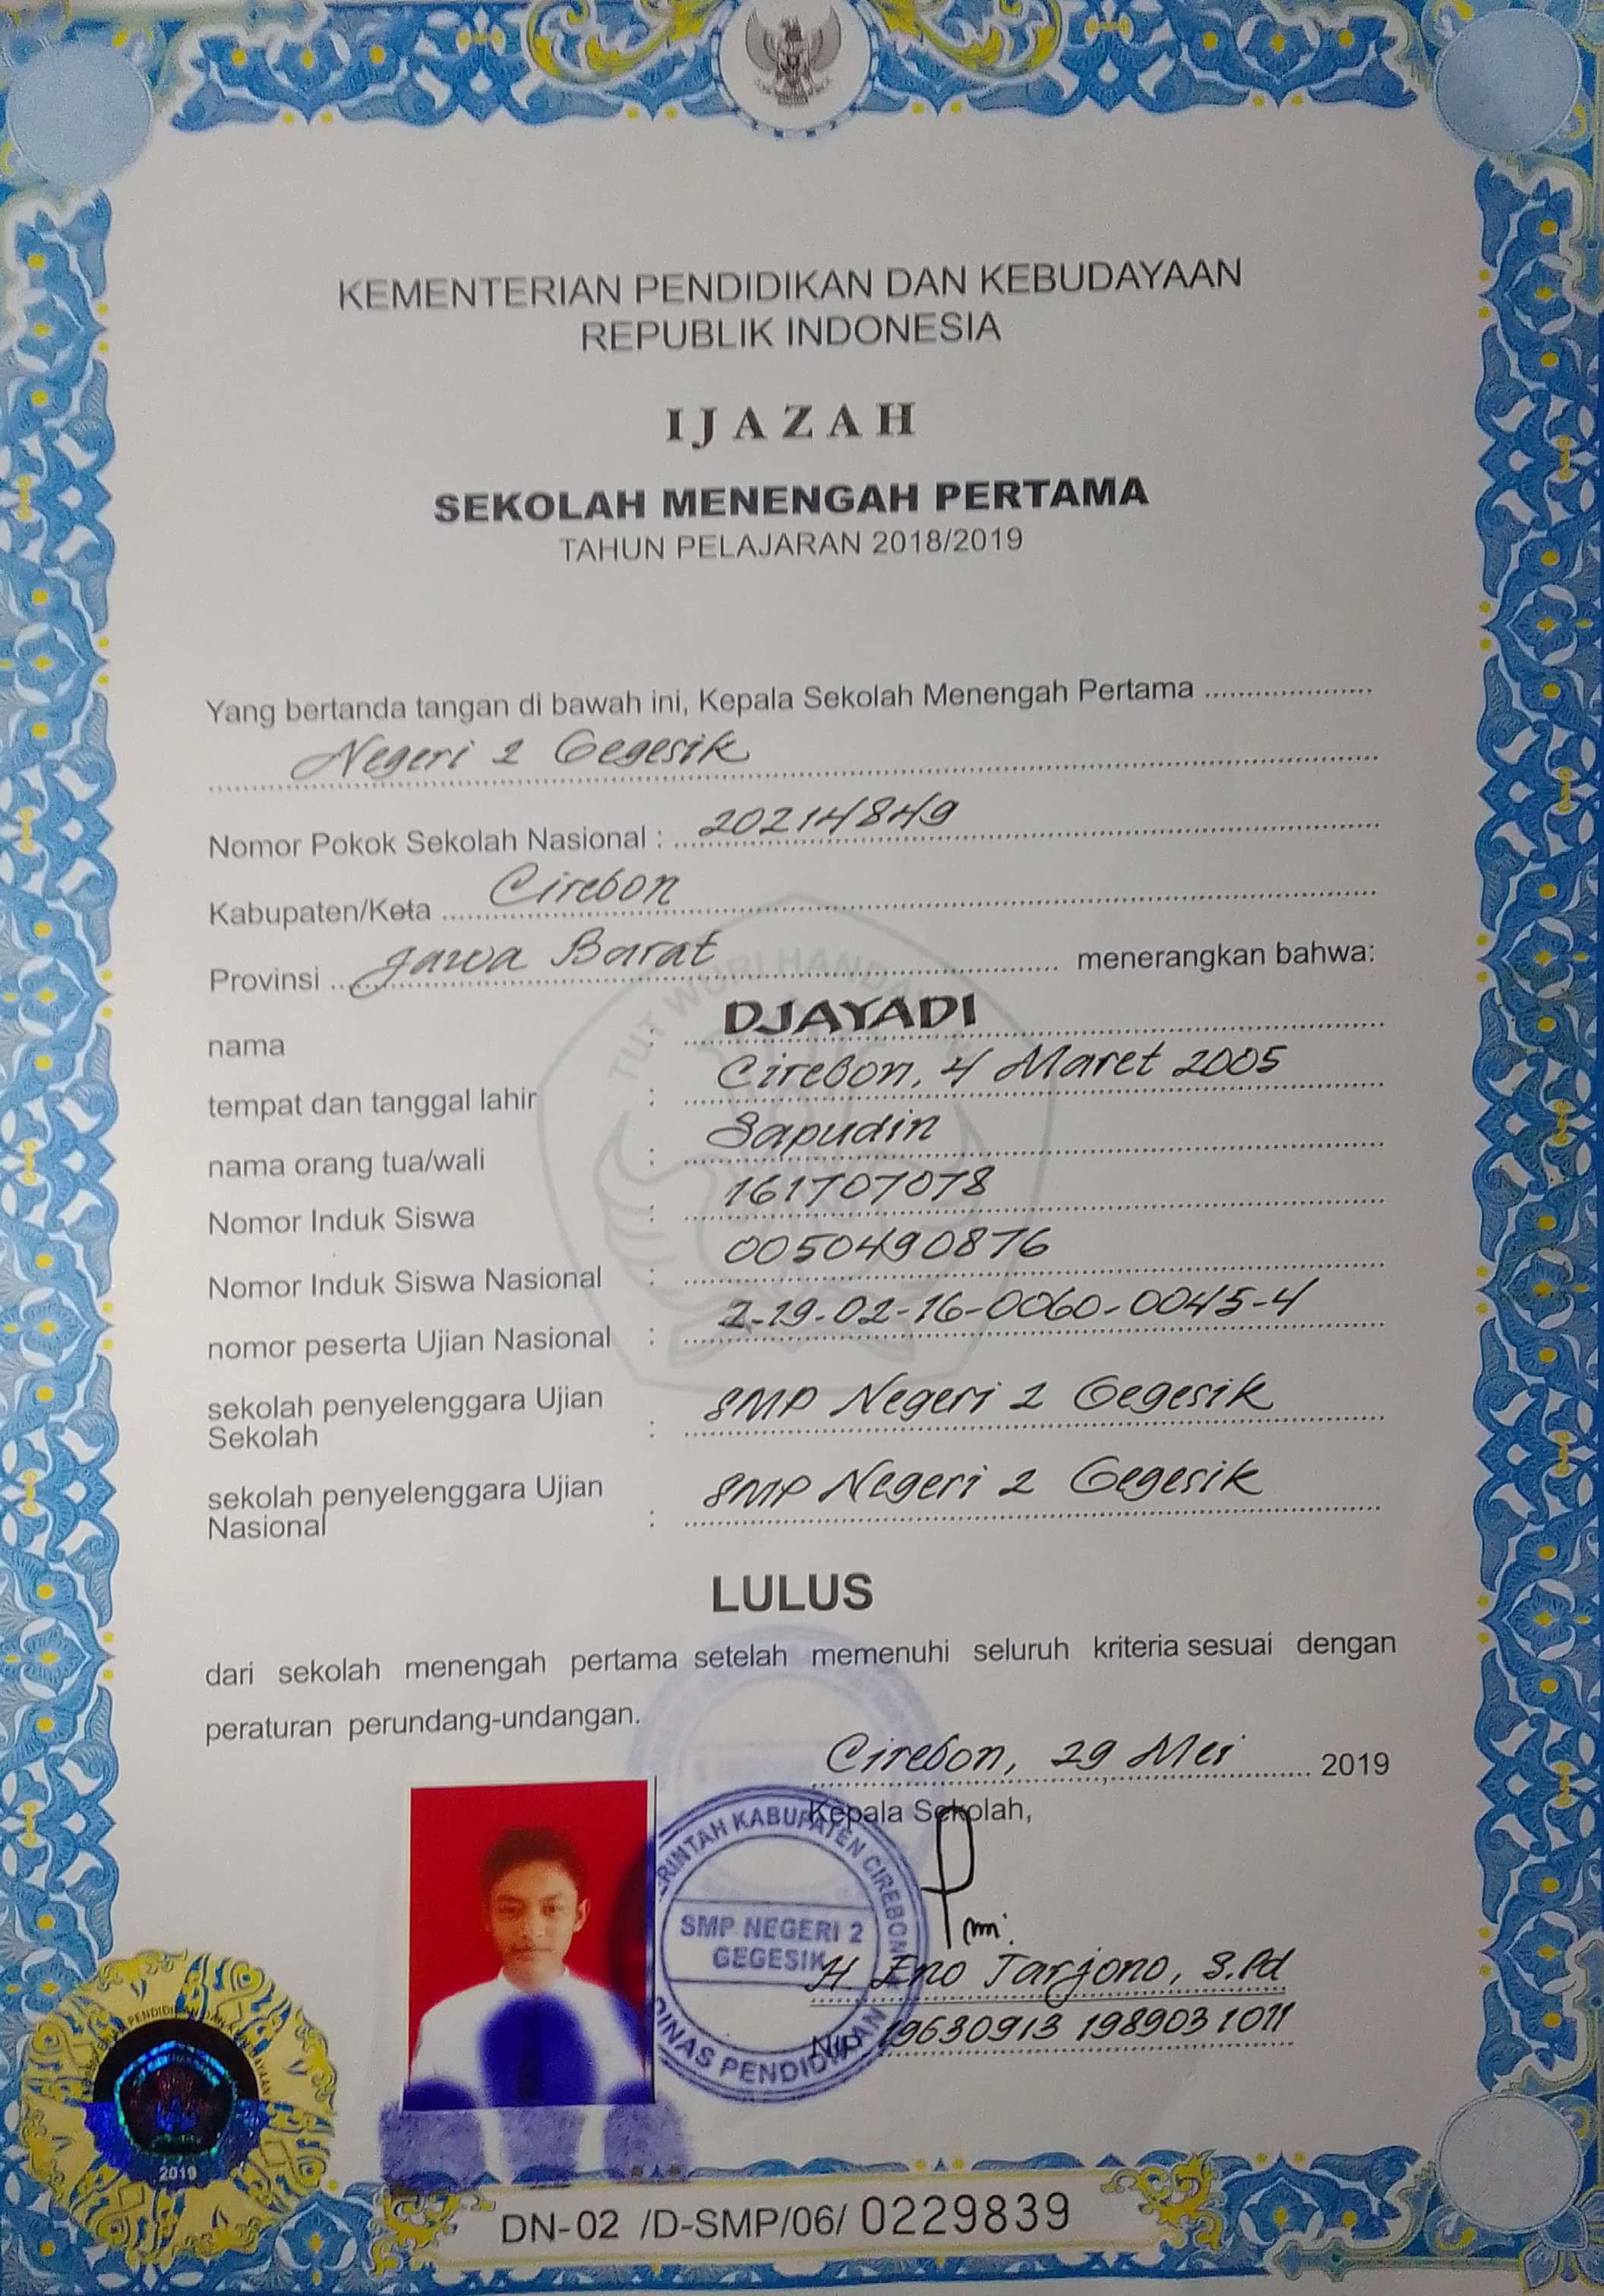 KEMENTERIAN PENDIDIKAN DAN KEBUDAYAAN
REPUBLIK INDONESIA
IJAZAH
SEKOLAH MENENGAH PERTAMA
TAHUN PELAJARAN 2018/2019
Yang bertanda tangan di bawah ini, Kepala Sekolah Menengah Pertama
Negeri 2 Gegesik
Nomor Pokok Sekolah Nasional : 20214849
Kabupaten/Kota Cirebon
Provinsi Jawa Barat menerangkan bahwa:
TUT WURI HANDAYANI
nama : DJAYADI
tempat dan tanggal lahir : Cirebon, 4 Maret 2005
nama orang tua/wali : Sapudin
Nomor Induk Siswa : 161707078
Nomor Induk Siswa Nasional : 0050490876
nomor peserta Ujian Nasional : 2-19-02-16-0060-0045-4
sekolah penyelenggara Ujian
Sekolah : SMP Negeri 2 Gegesik
sekolah penyelenggara Ujian
Nasional : SMP Negeri 2 Gegesik
LULUS
dari sekolah menengah pertama setelah memenuhi seluruh kriteria sesuai dengan
peraturan perundang-undangan.
Cirebon, 29 Mei 2019
Kepala Sekolah,
RINTAH KABUPATEN CIREBON
SMP NEGERI 2
GEGESIK
DINAS PENDIDIKAN
H Eno Tarjono, S.Pd
NIP 19630913 198903 1 011
2019
DN-02 /D-SMP/06/ 0229839